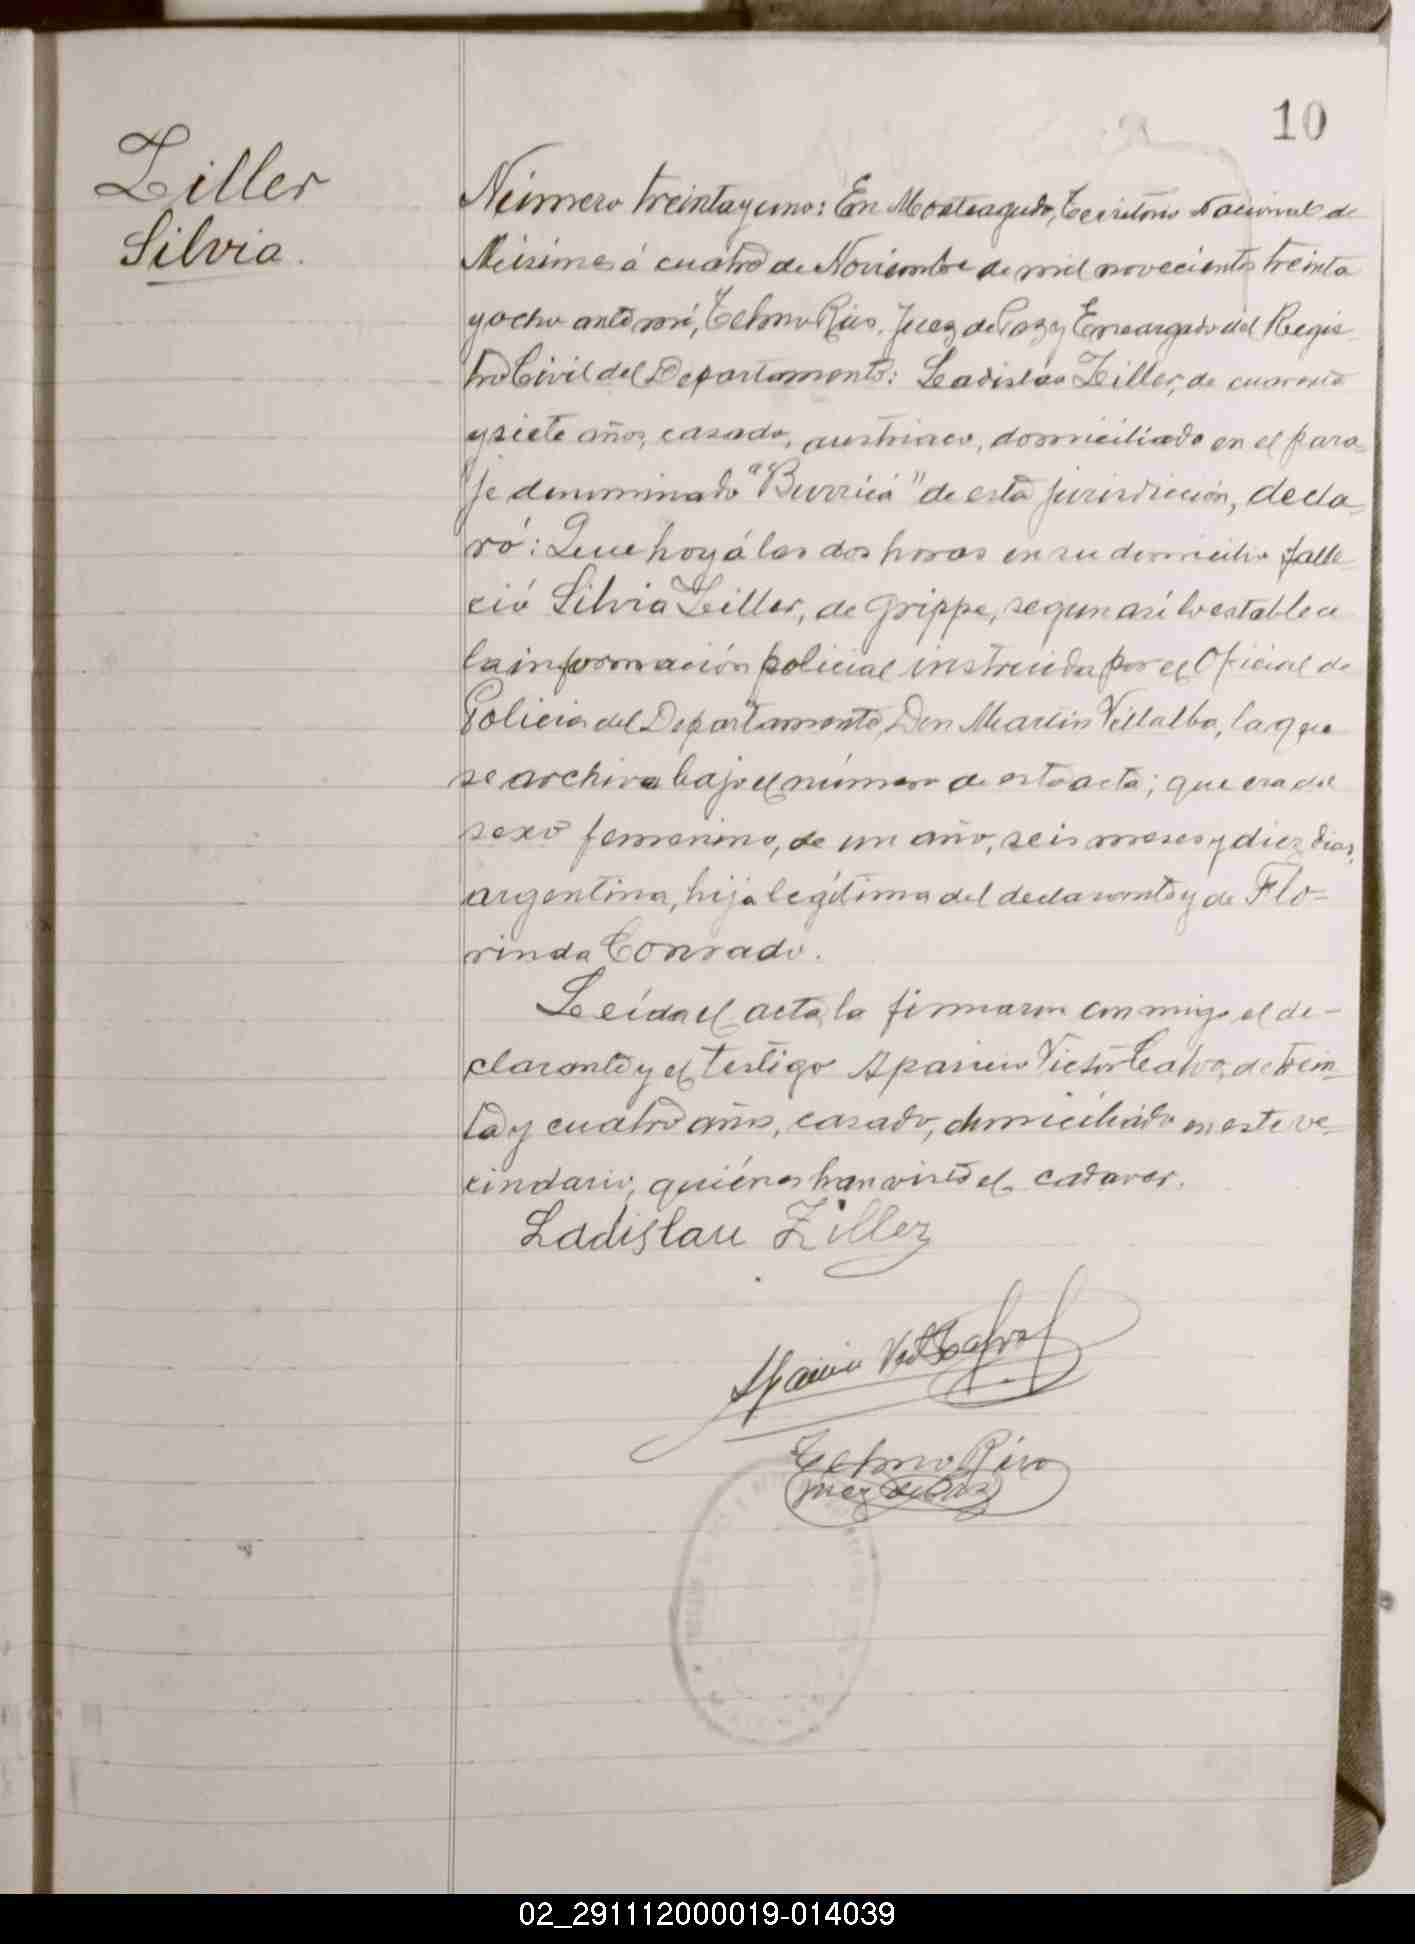 10
Ziller
Silvia.
Número treinta y uno: En Monteagudo, Territorio Nacional de
Misiones á cuatro de Noviembre de mil novecientos treinta
y ocho ante mí, Telmo Rivo, Juez de Paz y Encargado del Regis-
tro Civil del Departamento: Ladislao Ziller, de cuarenta
y siete años, casado, austriaco, domiciliado en el para-
je denominado "Burricá" de esta jurisdicción, decla-
ró: Que hoy á las dos horas en su domicilio falle-
ció Silvia Ziller, de grippe, segun así lo establece
la información policial instruida por el Oficial de
Policia del Departamento, Don Martin Villalba, la que
se archiva bajo el número de esta acta; que era del
sexo femenino, de un año, seis meses y diez dias,
argentina, hija legítima del declarante y de Flo-
rinda Conrado.
Leída el acta, la firmaron conmigo el de-
clarante y el testigo Aparicio Victor Calvo, de trein-
ta y cuatro años, casado, domiciliado en este ve-
cindario, quiénes han visto el cadaver.
Ladislau Ziller
Telmo Rivo
Juez de Paz
02_291112000019-014039